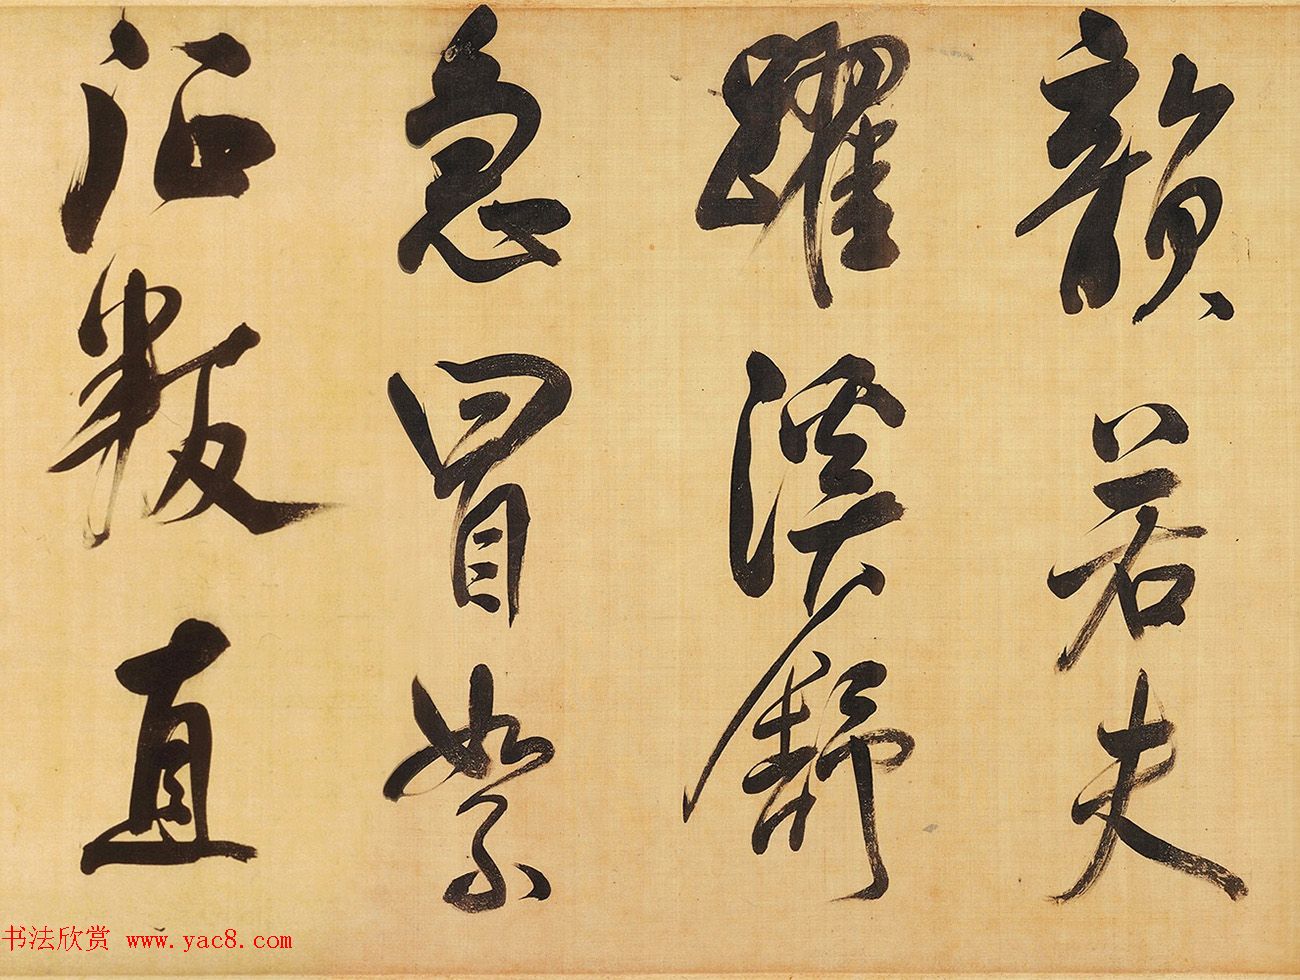 韻若夫
躍溪舒
急冒絮
叛直
书法欣赏 www.yac8.com